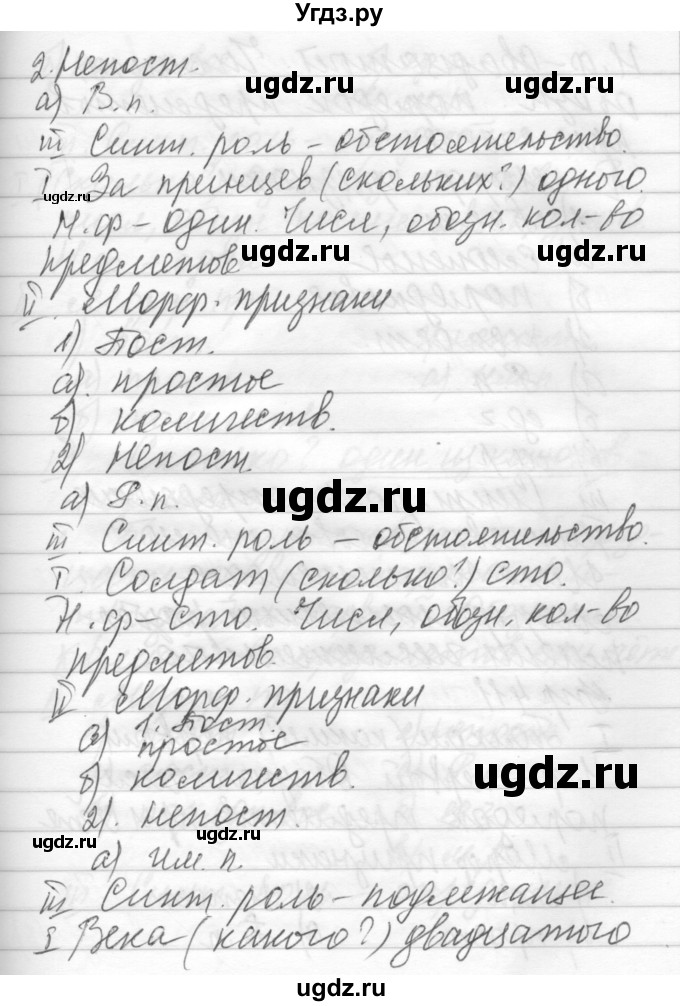 Угдз.ру
2. Непост.
а) В. п.
III Синт. роль – обстоятельство.
I За принцев (скольких?) одного.
Н. ф – один. Числ, обозн. кол-во
предметов
II Морф. признаки
1) Пост.
а). простое
б) количеств.
2) непост.
а) Р. п.
III Синт. роль – обстоятельство.
I. Солдат (сколько?) сто.
Н. ф – сто. Числ, обозн. кол-во
предметов.
II Морф. признаки
1. Пост.
а) простое
б) количеств.
2). непост.
а) Им. п.
III Синт. роль – подлежащее.
I Века (какого?) двадцатого
ugdz.ru
ugdz.ru
ugdz.ru
ugdz.ru
ugdz.ru
ugdz.ru
ugdz.ru
ugdz.ru
ugdz.ru
ugdz.ru
ugdz.ru